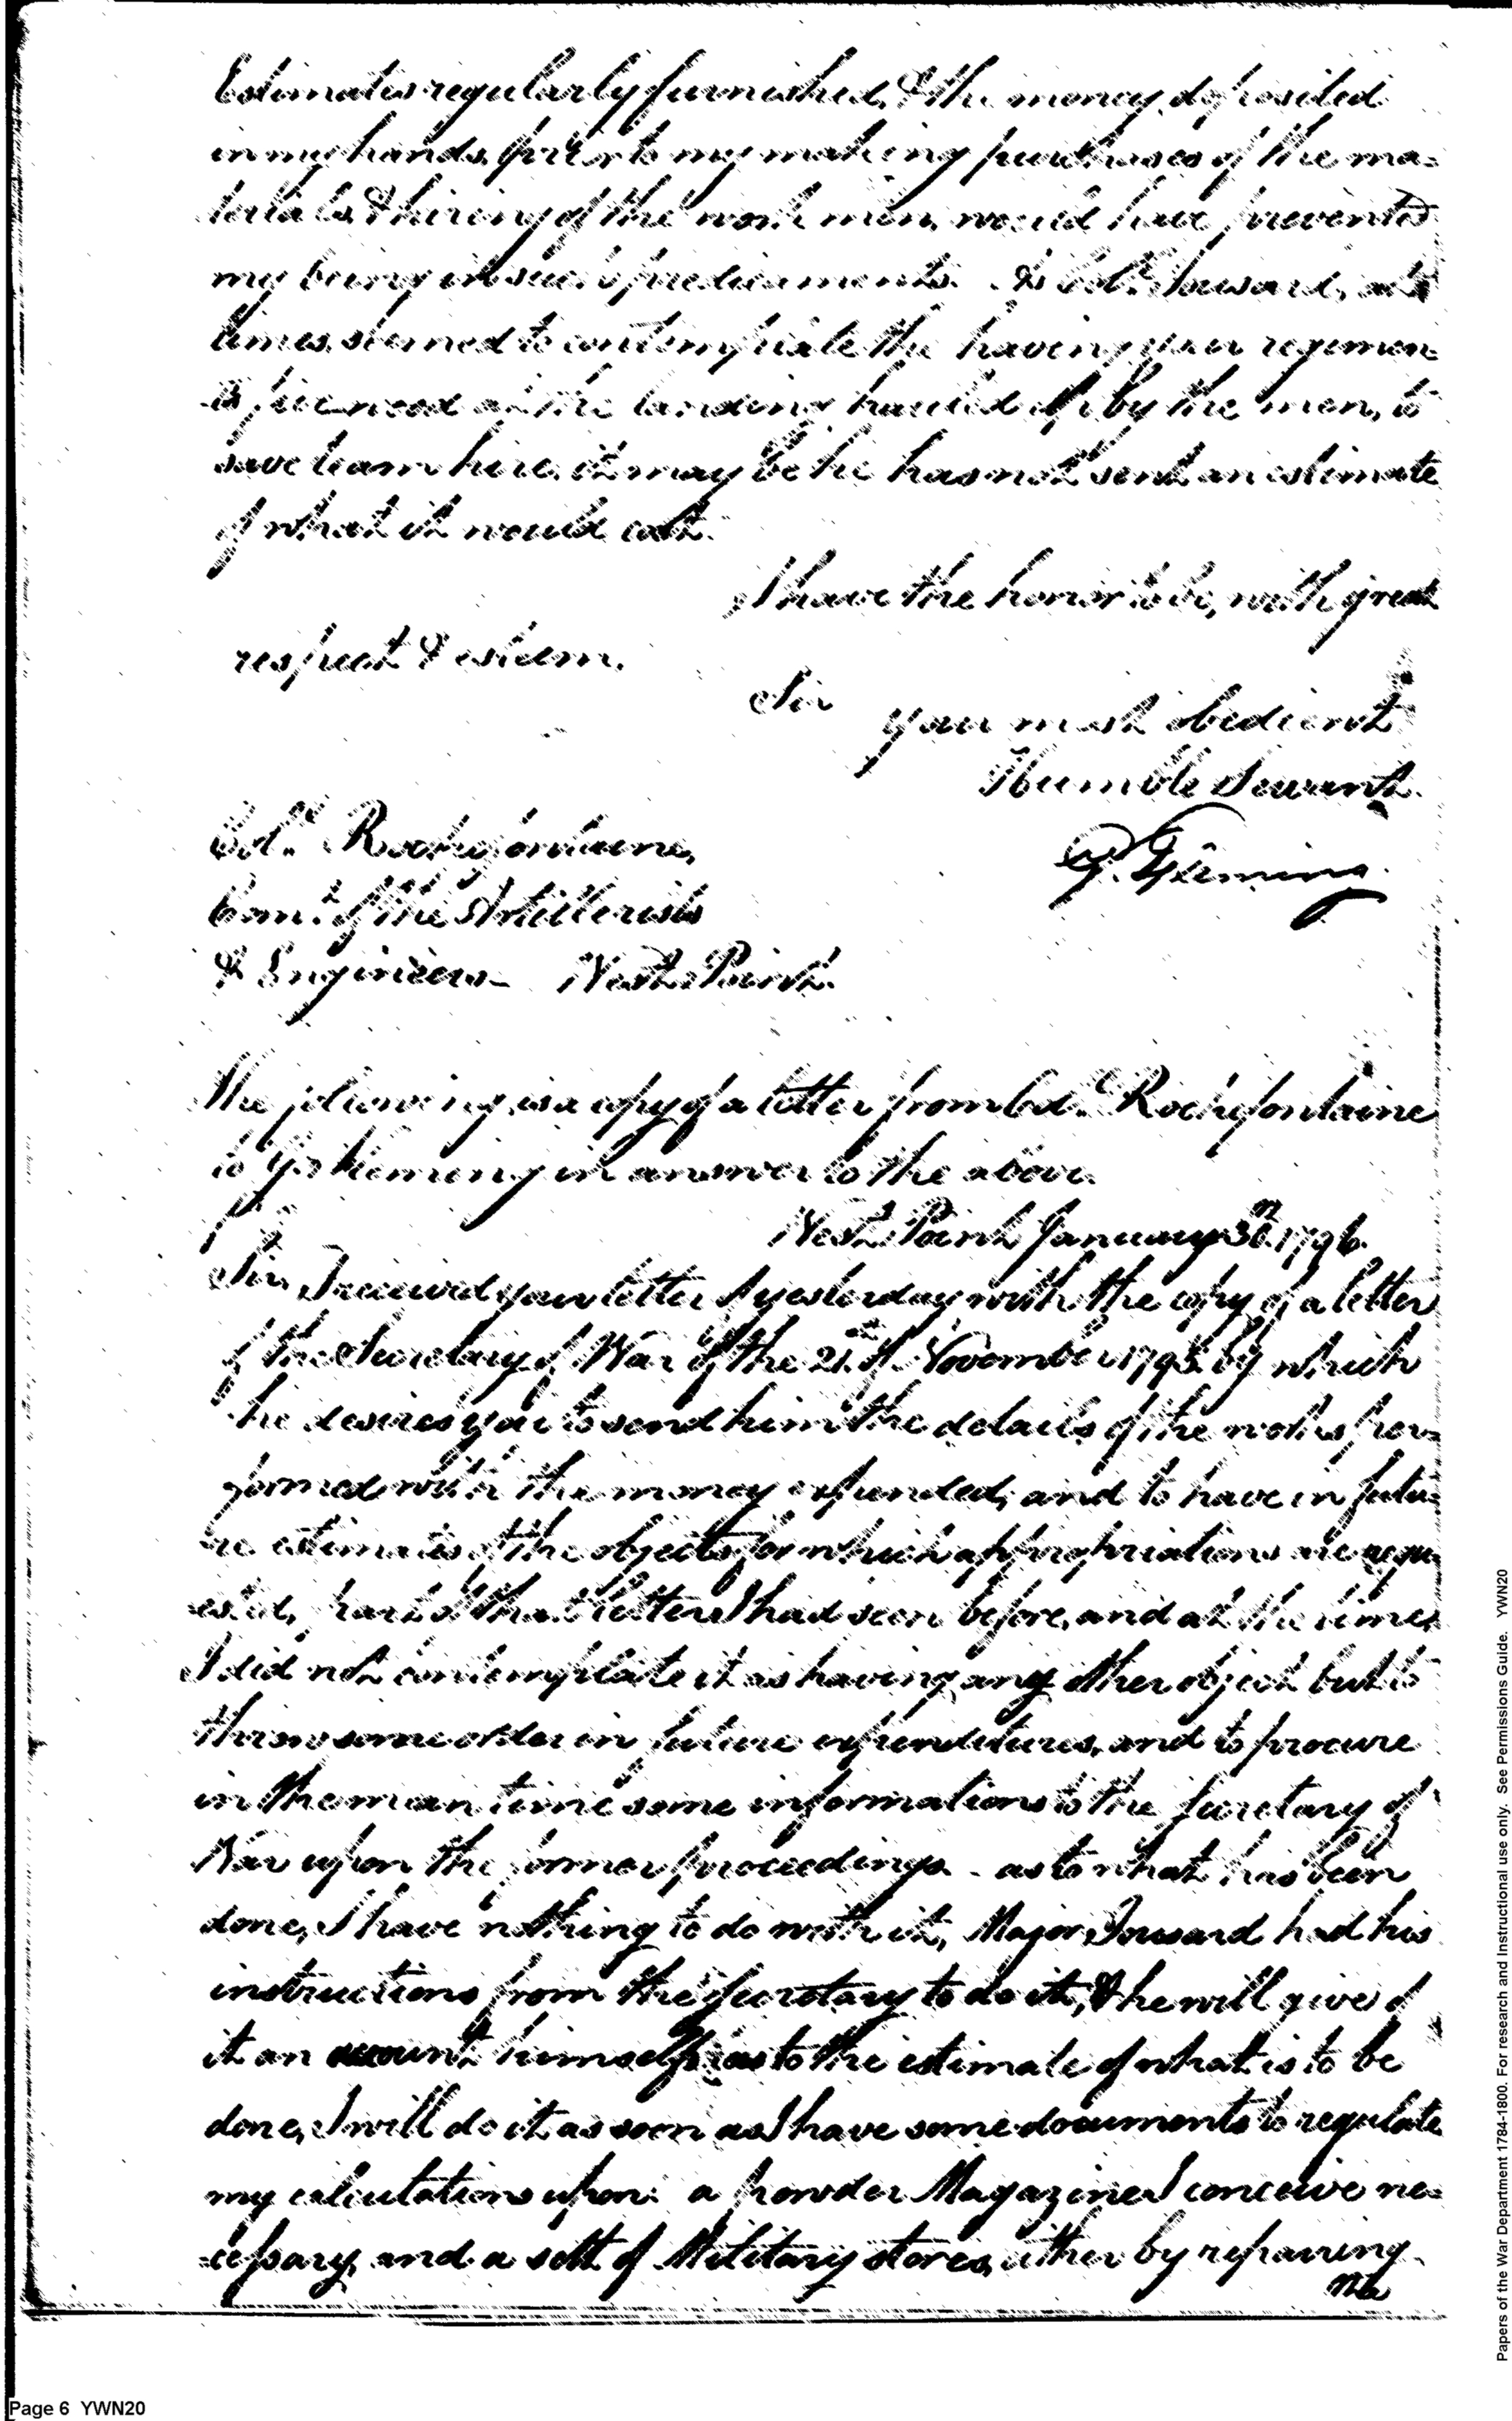 Estimates regularly furnished, & the money deposited
in my hands, prior to my making purchases of the ma-
terials & hiring of the work men, would have prevented
my being in such predicaments. As Col.º Toussard, at
times, seemed to contemplate the having your regimen-
ts fire wood at the landing hauled off by the men, to
save team hire, it may be he has not sent an estimate
of what it would cost.
I have the honor to be, with great
respect & esteem.
Sir
your most obedient
Humble Servant.
G. Fleming
Col.º Rochefontaine,
Com.t of the Artillerists
& Engineers - West Point.
The following is a copy of a letter from Col.º Rochefontaine
to G. Fleming in answer to the above.
West Point January 30 1796.
Sir, I received your letter of yesterday with the copy of a letter
of the Secretary of War of the 21.st of November 1795. by which
he desires you to send him the details of the works per-
formed with the money expended, and to have in futu-
re estimates of the objects for which appropriations are requ-
ested, that letter I had seen before, and at the time,
I did not contemplate it as having any other object but to
throw some order in future expenditures, and to procure
in the mean time some informations to the Secretary of
War upon the former proceedings. - as to what has been
done, I have nothing to do with it, Major Toussard had his
instructions from the Secretary to do it, & he will give of
it an account himself; as to the estimate of what is to be
done, I will do it as soon as I have some documents to regulate
my calculations upon: a powder Magazine I conceive ne-
cessary, and a sett of Military stores, either by repairing
the
Papers of the War Department 1784-1800. For research and Instructional use only. See Permissions Guide. YWN20
Page 6 YWN20